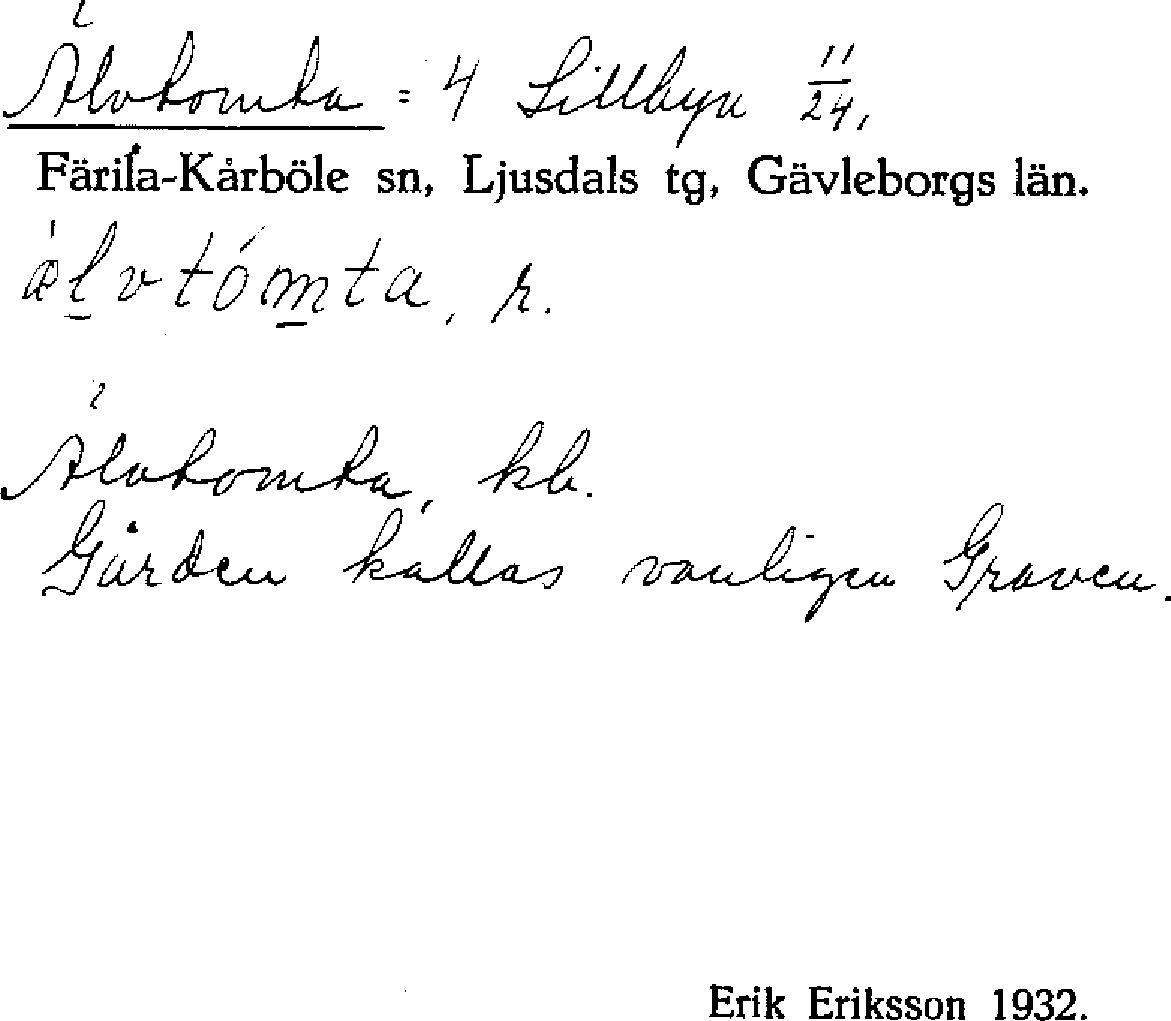 Älvtomta = 4 Lillbyn 11/24,
Färila-Kårböle sn, Ljusdals tg, Gävleborgs län.
æ̀lvtómta, r.
Älvtomta, kb.
Gården kallas vanligen Graven.
Erik Eriksson 1932.